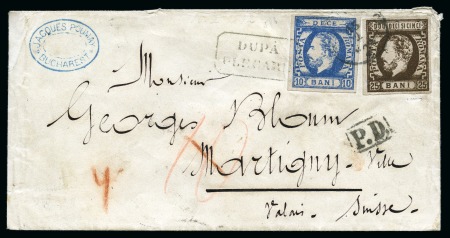 JACQUES POUMAY
BUCHAREST
DUPĂ
PLECARE
ZECE
10 BANI 10
25 BANI 25
Monsieur
Georges Bloum
P.D.
Martigny-Ville
Valais. Suisse.